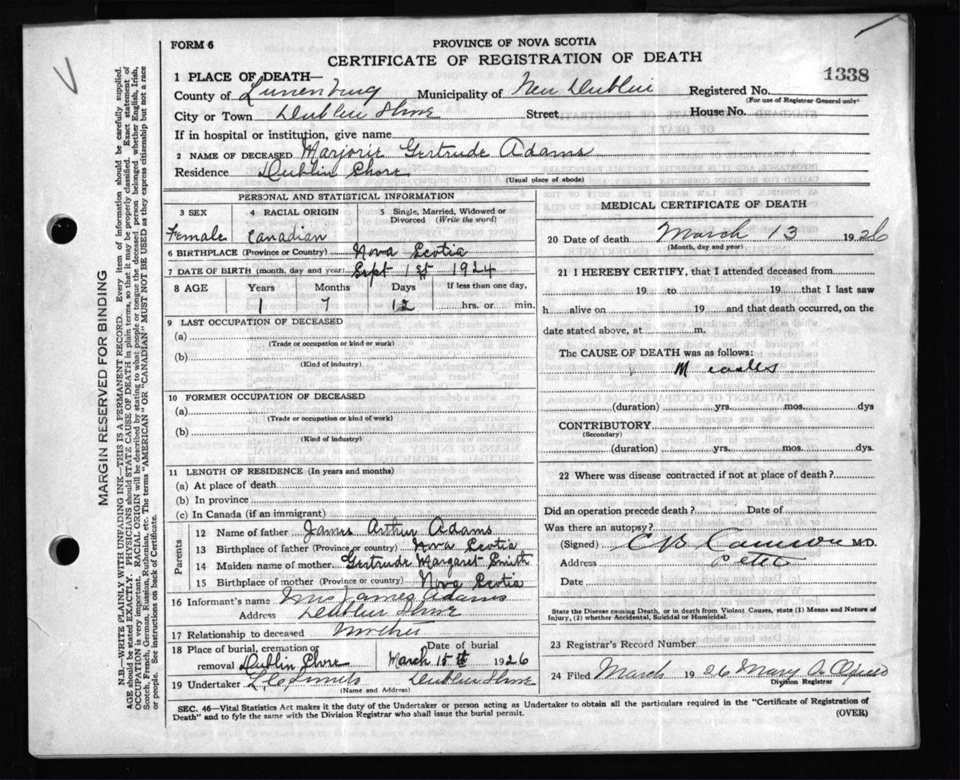 FORM 6
PROVINCE OF NOVA SCOTIA
CERTIFICATE OF REGISTRATION OF DEATH
1338
1 PLACE OF DEATH—
County of Lunenburg Municipality of New Dublin Registered No.
(For use of Registrar General only)
City or Town Dublin Shore Street House No.
If in hospital or institution, give name
2 NAME OF DECEASED Marjorie Gertrude Adams
Residence Dublin Shore
(Usual place of abode)
PERSONAL AND STATISTICAL INFORMATION
3 SEX 4 RACIAL ORIGIN 5 Single, Married, Widowed or Divorced (Write the word)
Female Canadian
6 BIRTHPLACE (Province or Country) Nova Scotia
7 DATE OF BIRTH (month, day and year) Sept 1st 1924
8 AGE Years Months Days If less than one day,
1 7 12 hrs. or min.
9 LAST OCCUPATION OF DECEASED
(a)
(Trade or occupation or kind or work)
(b)
(Kind of industry)
10 FORMER OCCUPATION OF DECEASED
(a)
(Trade or occupation or kind of work)
(b)
(Kind of industry)
11 LENGTH OF RESIDENCE (In years and months)
(a) At place of death
(b) In province
(c) In Canada (if an immigrant)
Parents
12 Name of father James Arthur Adams
13 Birthplace of father (Province or country) Nova Scotia
14 Maiden name of mother Gertrude Margaret Smith
15 Birthplace of mother (Province or country) Nova Scotia
16 Informant's name Mrs James Adams
Address Dublin Shore
17 Relationship to deceased mother
18 Place of burial, cremation or removal Dublin Shore Date of burial March 15th 1926
19 Undertaker Dublin Shore
(Name and Address)
MEDICAL CERTIFICATE OF DEATH
20 Date of death March 13 1926
(Month, day and year)
21 I HEREBY CERTIFY, that I attended deceased from
19 to 19 that I last saw
h alive on 19 and that death occurred, on the
date stated above, at m.
The CAUSE OF DEATH was as follows:
Measles
(duration) yrs. mos. dys
CONTRIBUTORY
(Secondary)
(duration) yrs. mos. dys
22 Where was disease contracted if not at place of death?
Did an operation precede death? Date of
Was there an autopsy?
(Signed) M.D.
Address
Date
State the Disease causing Death, or in death from Violent Causes, state (1) Means and Nature of
Injury, (2) whether Accidental, Suicidal or Homicidal.
23 Registrar's Record Number
24 Filed March 1926 Mary A
Division Registrar
SEC. 46—Vital Statistics Act makes it the duty of the Undertaker or person acting as Undertaker to obtain all the particulars required in the "Certificate of Registration of
Death" and to fyle the same with the Division Registrar who shall issue the burial permit. (OVER)
MARGIN RESERVED FOR BINDING
N.B.—WRITE PLAINLY WITH UNFADING INK—THIS IS A PERMANENT RECORD. Every item of information should be carefully supplied.
AGE should be stated EXACTLY. PHYSICIANS should STATE CAUSE OF DEATH in plain terms, so that it may be properly classified. Exact statement of
OCCUPATION is very important. RACIAL ORIGIN will be described by stating to what people or tongue the deceased person belonged whether English, Irish,
Scotch, French, German, Russian, Ruthenian, etc. The terms "AMERICAN" OR "CANADIAN" MUST NOT BE USED as they express citizenship but not a race
or people. See instructions on back of Certificate.